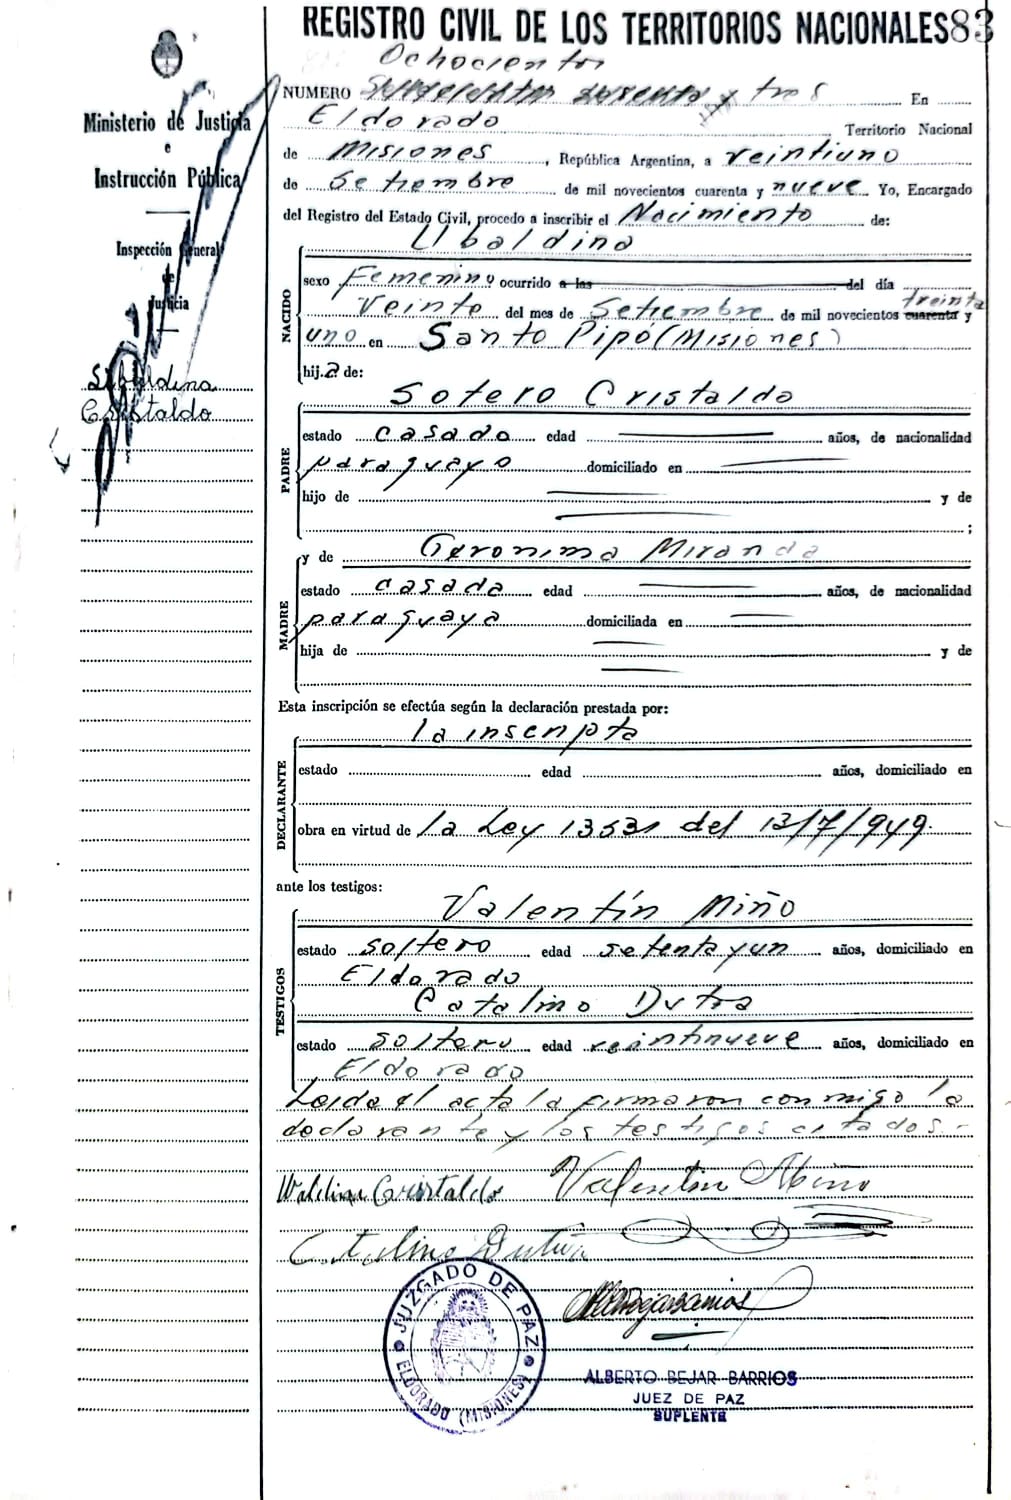 REGISTRO CIVIL DE LOS TERRITORIOS NACIONALES 83
Ochocientos
NUMERO cuarenta y tres En
Eldorado Territorio Nacional
de Misiones, República Argentina, a veintiuno
de Setiembre de mil novecientos cuarenta y nueve Yo, Encargado
del Registro del Estado Civil, procedo a inscribir el Nacimiento de:
Ministerio de Justicia
e
Instrucción Pública
Inspección General
de
Justicia
Ubaldina
Cristaldo
NACIDO
Ubaldina
sexo Femenino ocurrido a las del día
treinta
Veinte del mes de Setiembre de mil novecientos cuarenta y
uno en Santo Pipó (Misiones)
hija de:
PADRE
Sotero Cristaldo
estado casado edad años, de nacionalidad
paraguayo domiciliado en
hijo de y de
;
MADRE
y de Geronima Miranda
estado casada edad años, de nacionalidad
paraguaya domiciliada en
hija de y de
Esta inscripción se efectúa según la declaración prestada por:
DECLARANTE
la inscripta
estado edad años, domiciliado en
obra en virtud de la Ley 13531 del 13/7/949.
ante los testigos:
TESTIGOS
Valentín Miño
estado soltero edad setenta y un años, domiciliado en
Eldorado
Catalino Dutra
estado soltero edad veintinueve años, domiciliado en
Eldorado
Leida el acta la firmaron conmigo la
declarante y los testigos citados.-
Cristaldo Valentin Miño
Catalino Dutra
JUZGADO DE PAZ
ELDORADO (MISIONES)
ALBERTO BEJAR BARRIOS
JUEZ DE PAZ
SUPLENTE